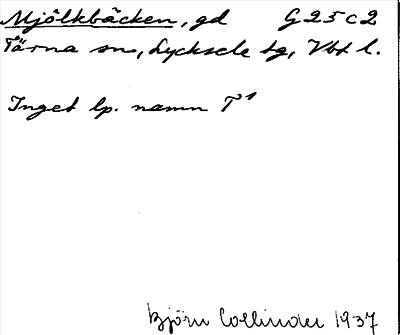 Mjölkbäcken, gd G 25 c 2
Tärna sn, Lycksele tg, Vbt l.
Inget lp. namn T¹
Björn Collinder 1937